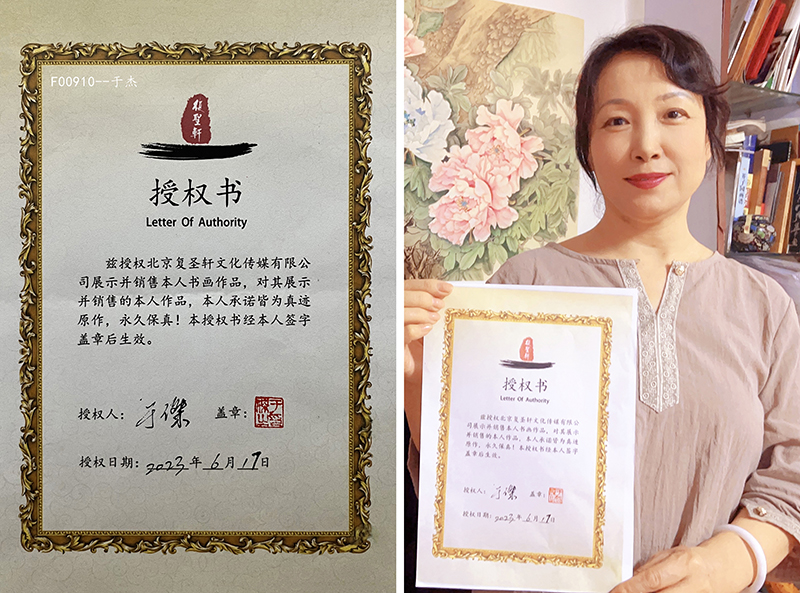 F00910--于杰
聖軒
授权书
Letter Of Authority
兹授权北京复圣轩文化传媒有限公
司展示并销售本人书画作品，对其展示
并销售的本人作品，本人承诺皆为真迹
原作，永久保真！本授权书经本人签字
盖章后生效。
授权人：于傑 盖章：
授权日期：2023年6月17日
聖軒
授权书
Letter Of Authority
兹授权北京复圣轩文化传媒有限公
司展示并销售本人书画作品，对其展示
并销售的本人作品，本人承诺皆为真迹
原作，永久保真！本授权书经本人签字
盖章后生效。
授权人：于傑 盖章：
授权日期：2023年6月17日